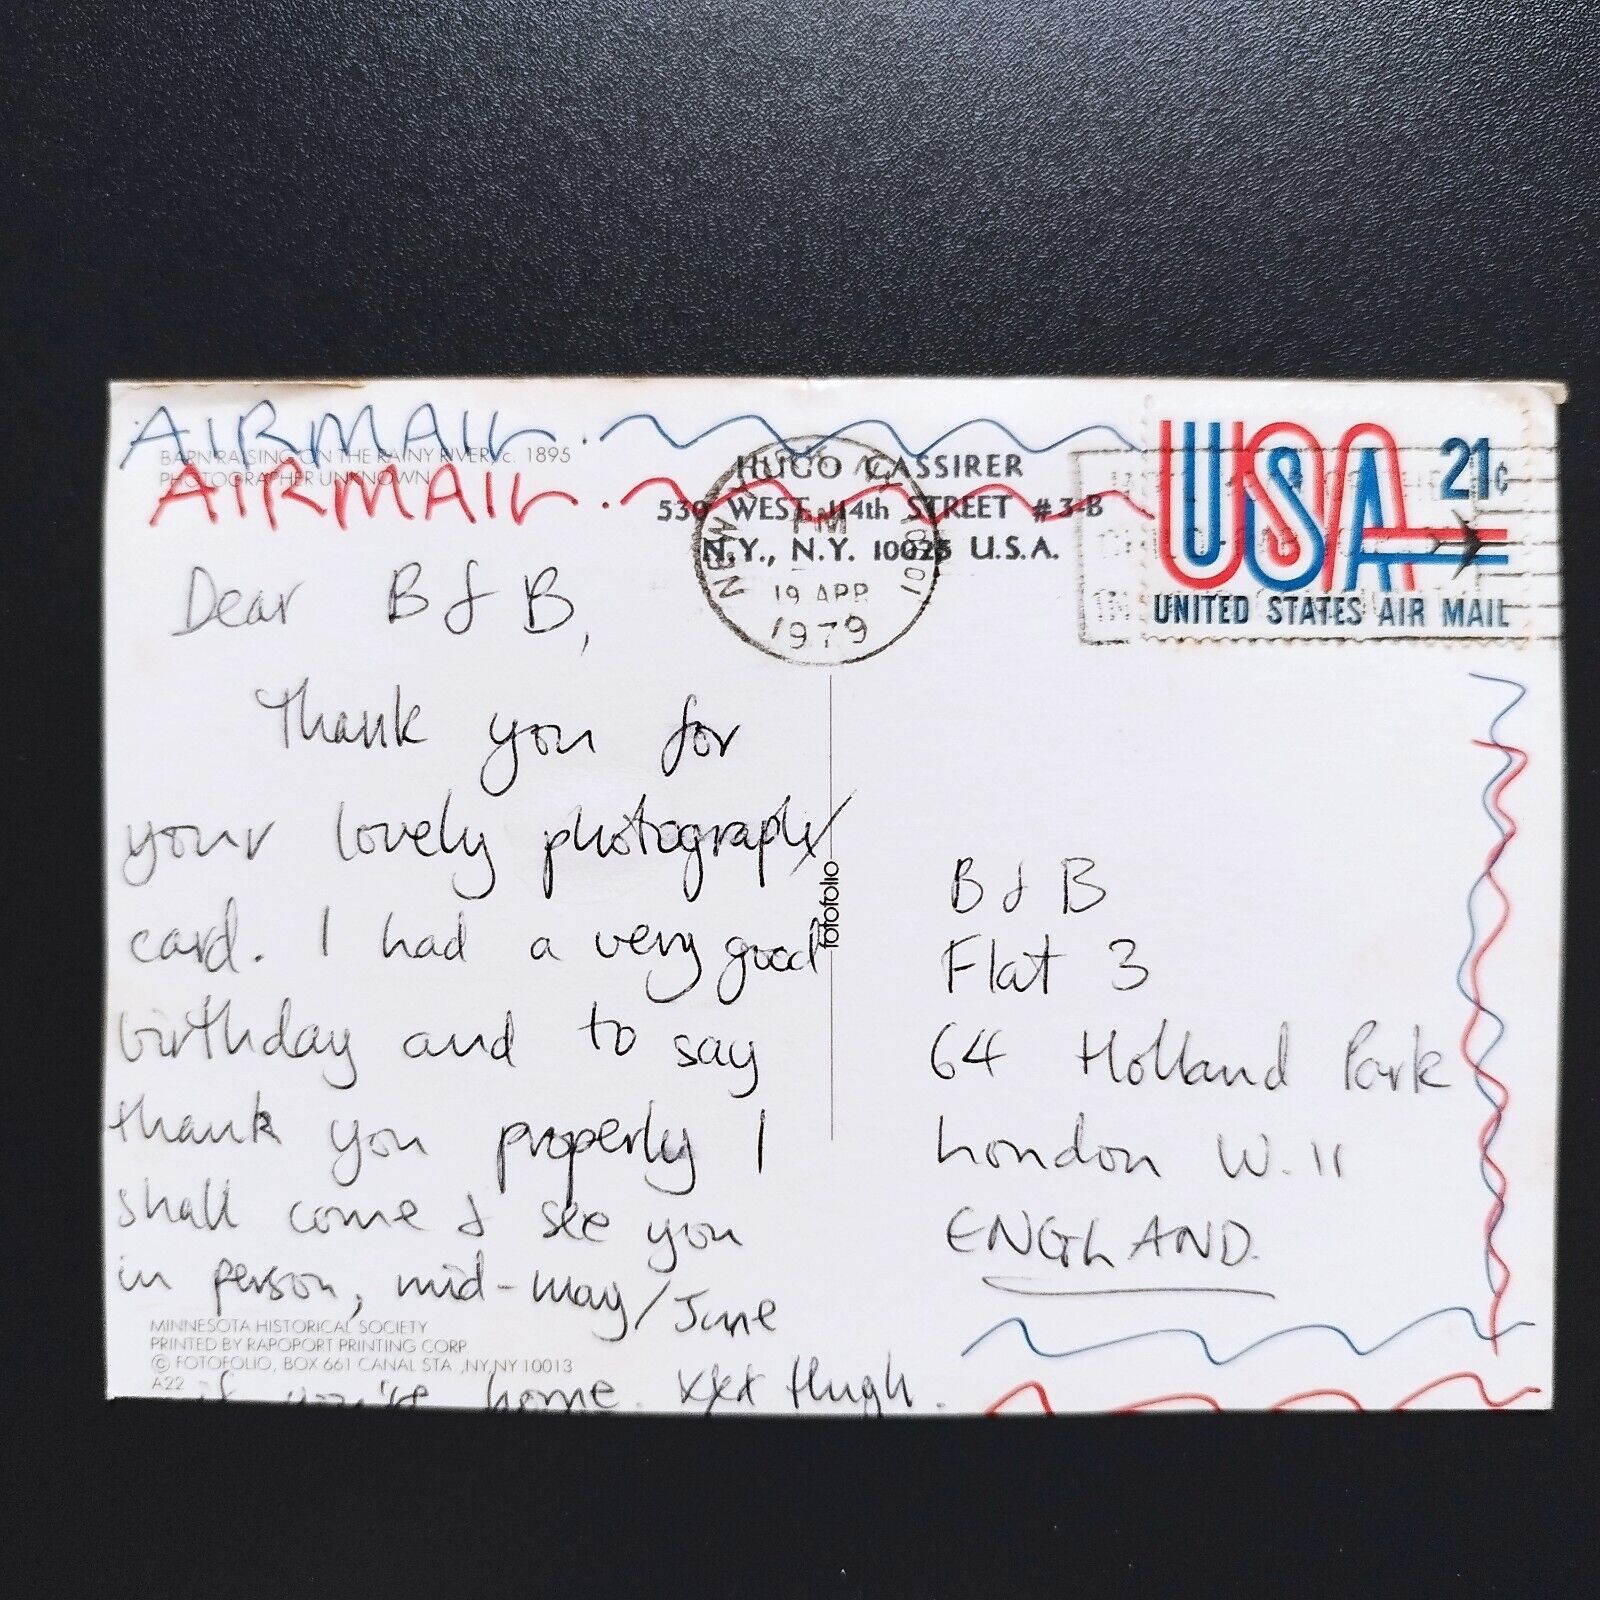 AIRMAIL.
BARN RAISING ON THE RAINY RIVER, c. 1895
PHOTOGRAPHER UNKNOWN
AIRMAIL.
HUGO CASSIRER
530 WEST 114th STREET #3-B
N.Y., N.Y. 10025 U.S.A.
NEW YORK, N.Y. 1001
PM
19 APR
1979
USA 21c
UNITED STATES AIR MAIL
Dear B & B,
Thank you for
your lovely photograph
card. I had a very good
birthday and to say
thank you properly I
shall come & see you
in person, mid-may/June
if you're home. xxx Hugh.
fotofolio
B & B
Flat 3
64 Holland Park
London W.11
ENGLAND.
MINNESOTA HISTORICAL SOCIETY
PRINTED BY RAPOPORT PRINTING CORP
© FOTOFOLIO, BOX 661 CANAL STA ,NY,NY 10013
A22